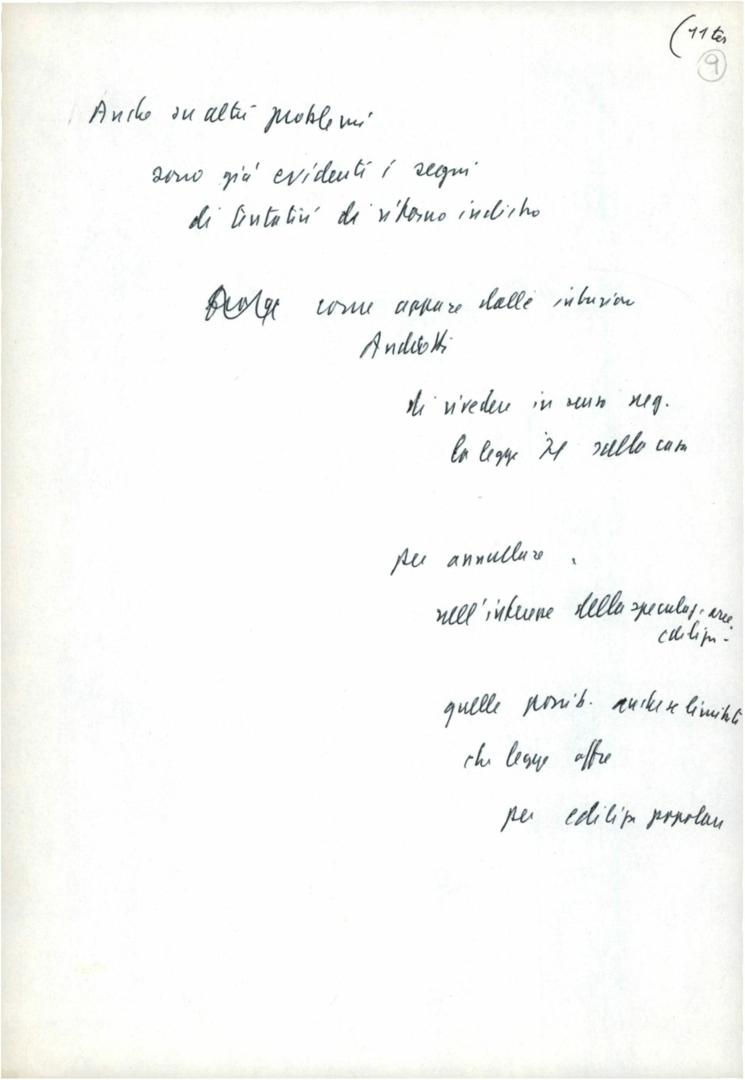 (11 ter
9
Anche su altri problemi
sono già evidenti i segni
di tentativi di ritorno indietro
come appare dalle intenzioni
Andreotti
di rivedere in senso neg.
la legge sulla casa
per annullare
nell'interesse della speculaz. aree
ediliz-
quelle possib. anche se limitate
che legge offre
per ediliz popolare